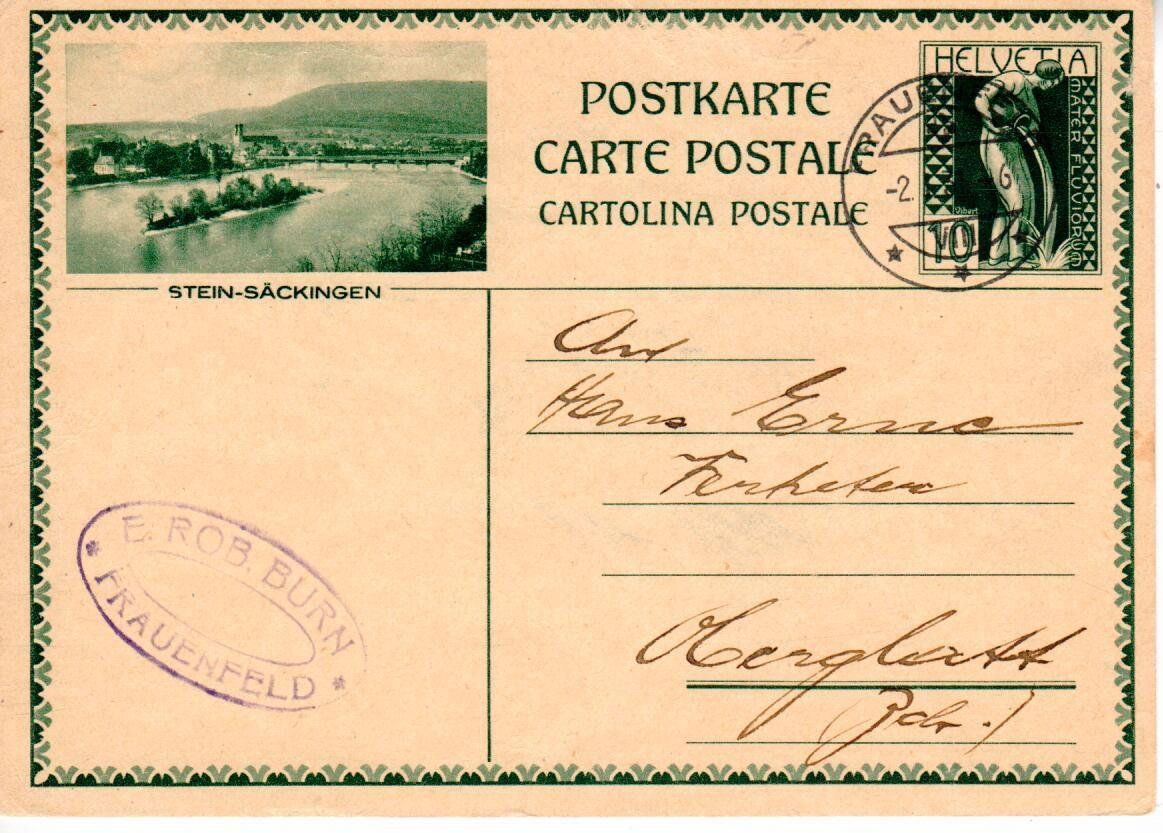 POSTKARTE
CARTE POSTALE
CARTOLINA POSTALE
HELVETIA
MATER FLUVIORUM
10
-2. VIII 6
STEIN-SÄCKINGEN
An
Hans Erne
Oberglatt
E. ROB. BURN
FRAUENFELD